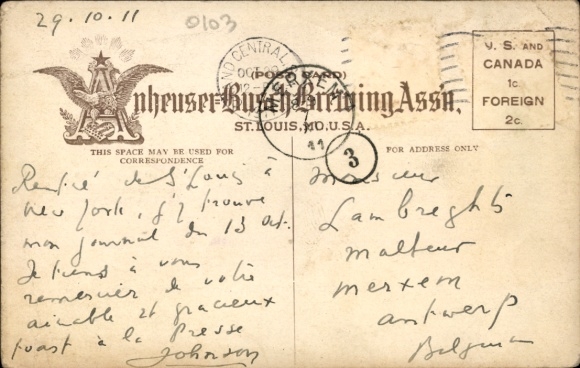 29.10.11
0103
GRAND CENTRAL
OCT 29
(POST CARD)
MERXEM
11
A
Anheuser-Busch Brewing Ass'n.
ST. LOUIS, MO., U.S.A.
U. S. AND
CANADA
1c.
FOREIGN
2c.
THIS SPACE MAY BE USED FOR
CORRESPONDENCE
3
FOR ADDRESS ONLY
Rentré de St Louis à
New York, j'y trouve
mon journal du 13 oct.
Je tiens à vous
remercier de votre
aimable et gracieux
toast à la Presse
Johnson
Monsieur
Lambreghts
malteur
merxem
antwerp
Belgium